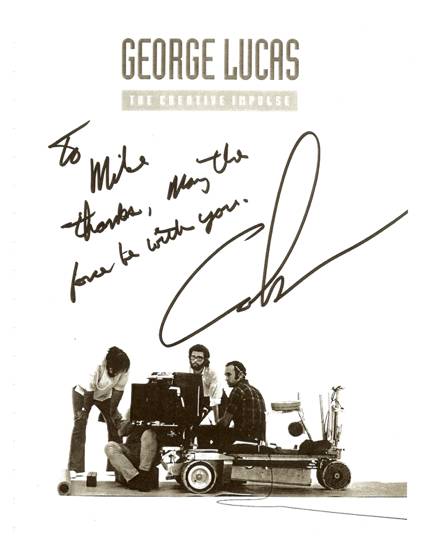 GEORGE LUCAS
THE CREATIVE IMPULSE
To Mike
thanks, May the
force be with you.